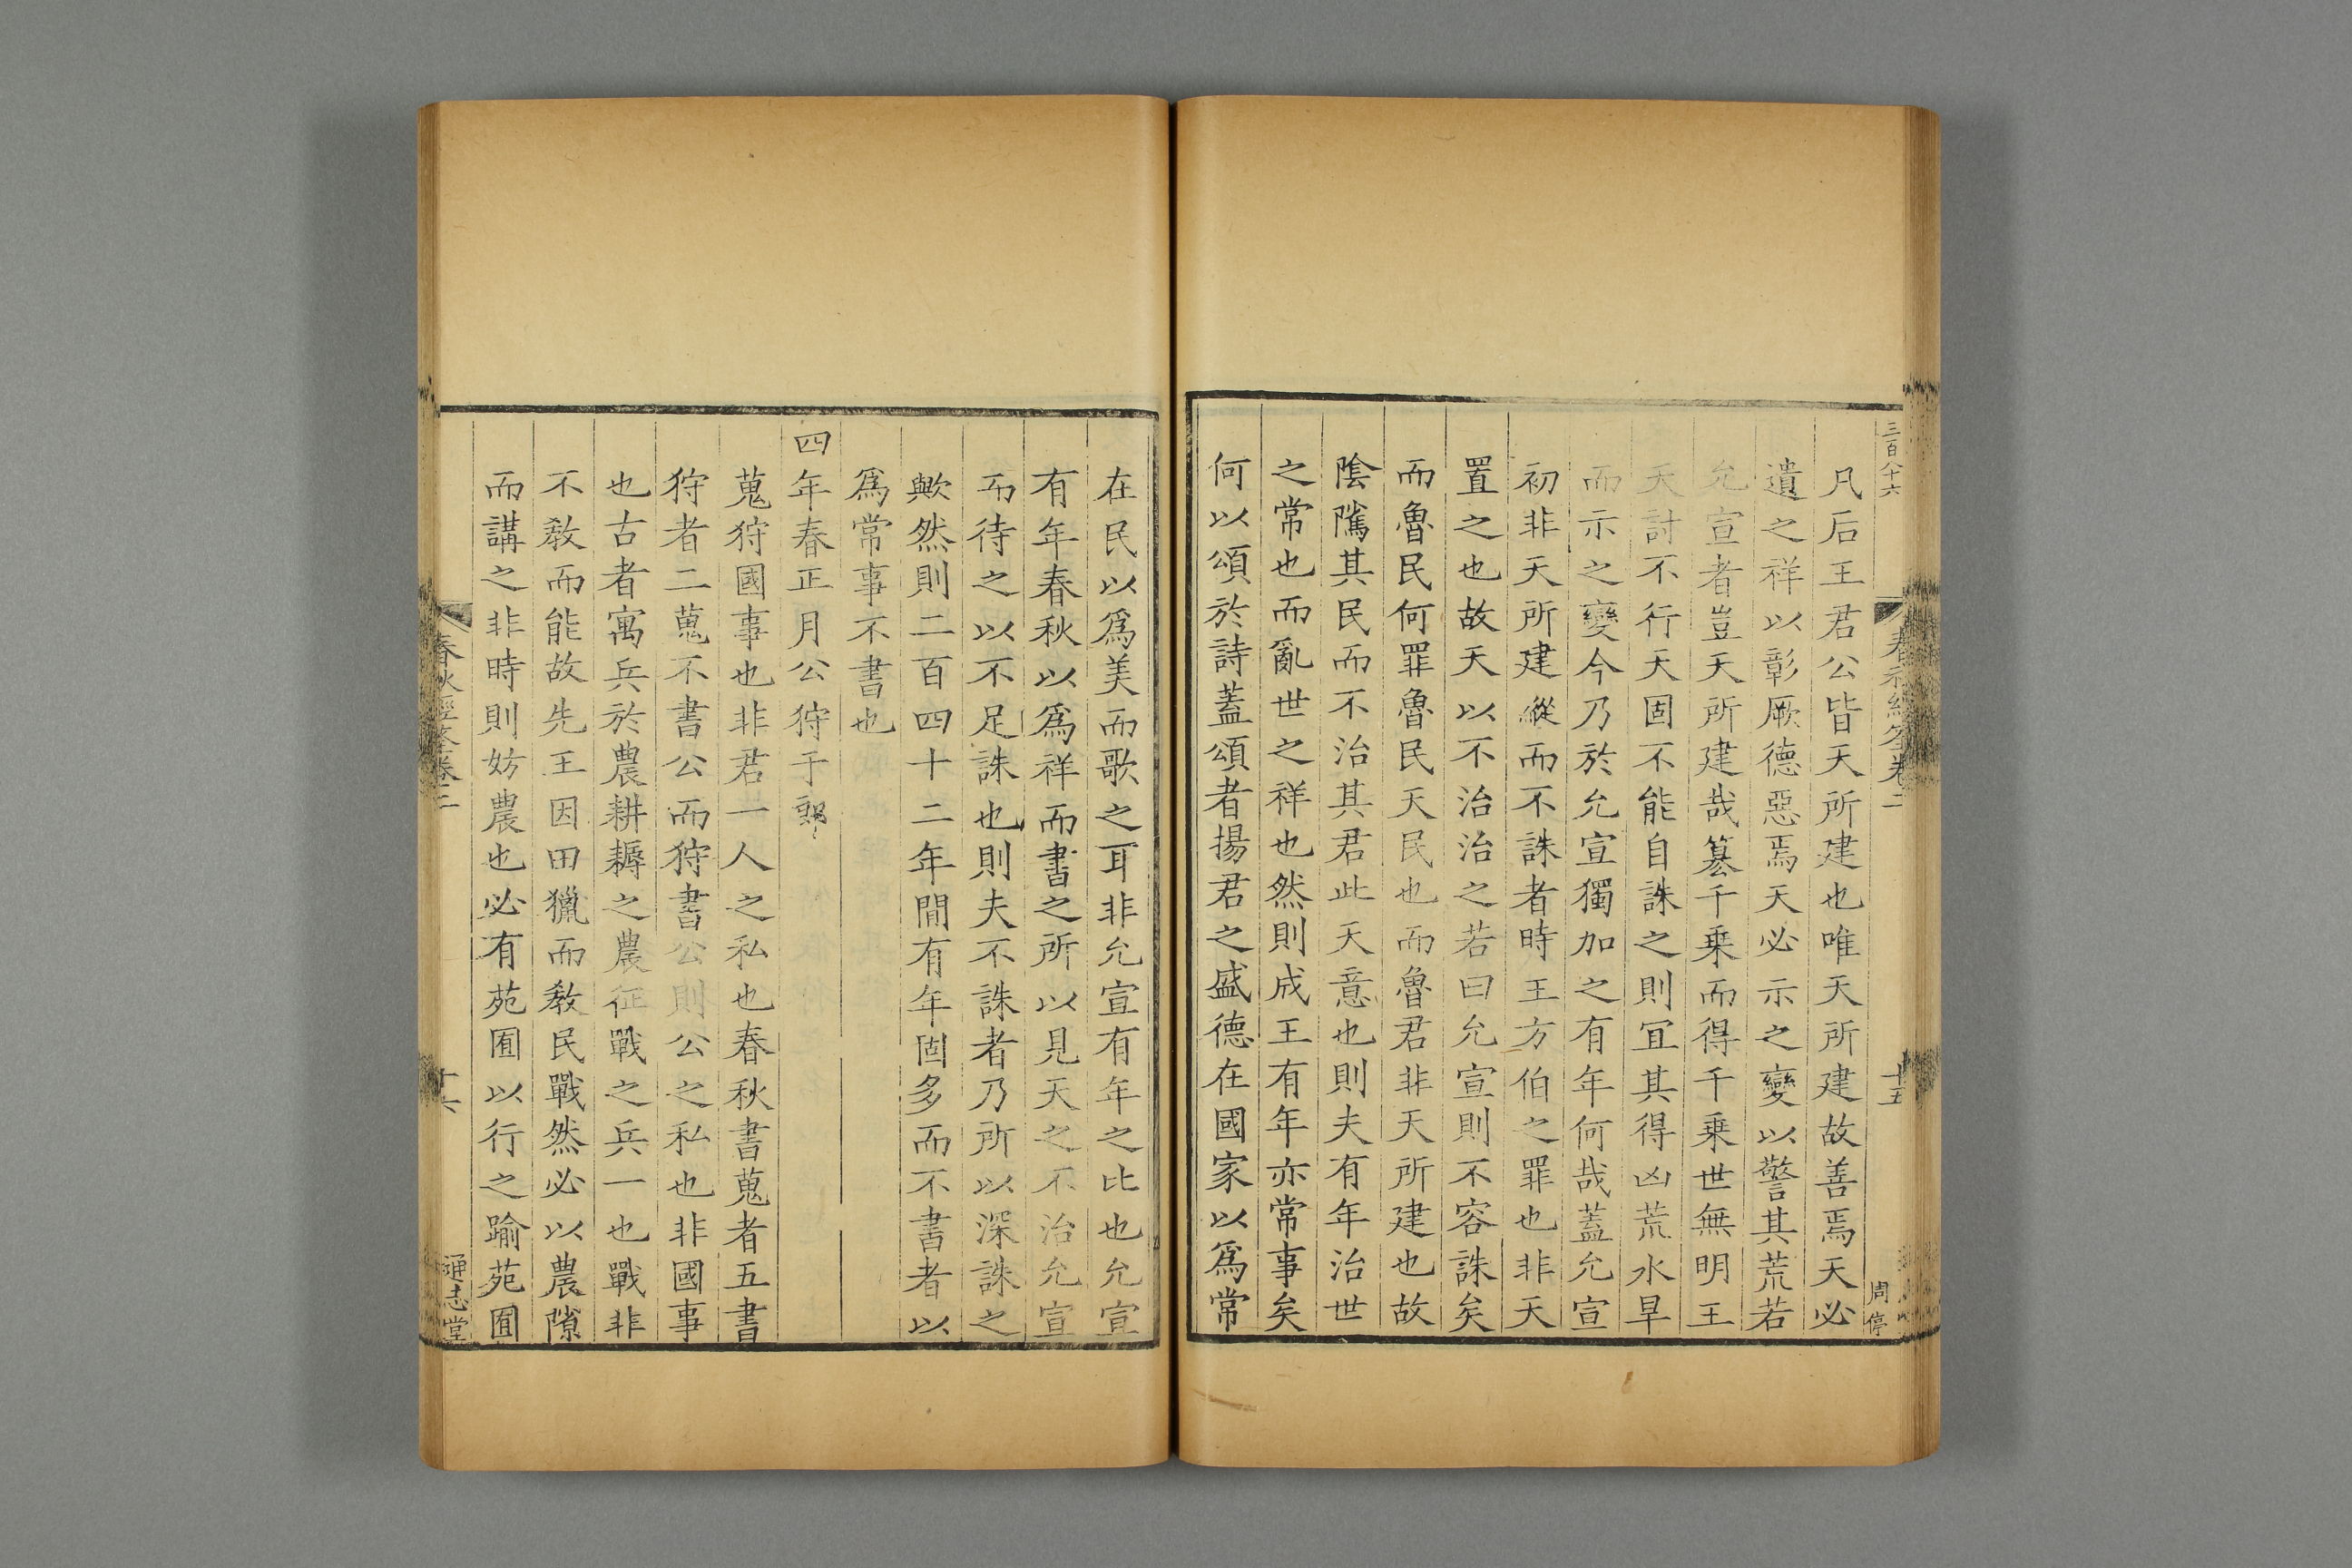 三百八十六
周停
凡后王君公皆天所建也唯天所建故善焉天必
遺之祥以彰厥德惡焉天必示之變以警其荒若
允宣者豈天所建哉簒千乗而得千乗世無明王
天討不行天固不能自誅之則冝其得凶荒水旱
而示之變今乃於允宣獨加之有年何哉蓋允宣
初非天所建縱而不誅者時王方伯之罪也非天
置之也故天以不治治之若曰允宣則不容誅矣
而魯民何罪魯民天民也而魯君非天所建也故
陰隲其民而不治其君此天意也則夫有年治世
之常也而亂世之祥也然則成王有年亦常事矣
何以頌於詩蓋頌者揚君之盛德在國家以爲常
在民以爲美而歌之耳非允宣有年之比也允宣
有年春秋以爲祥而書之所以見天之不治允宣
而待之以不足誅也則夫不誅者乃所以深誅之
歟然則二百四十二年間有年固多而不書者以
爲常事不書也
四年春正月公狩于郎
蒐狩國事也非君一人之私也春秋書蒐者五書
狩者二蒐不書公而狩書公則公之私也非國事
也古者寓兵於農耕耨之農征戰之兵一也戰非
不敎而能故先王因田獵而敎民戰然必以農隙
而講之非時則妨農也必有苑囿以行之踰苑囿
春秋經筌卷二
十六
通志堂